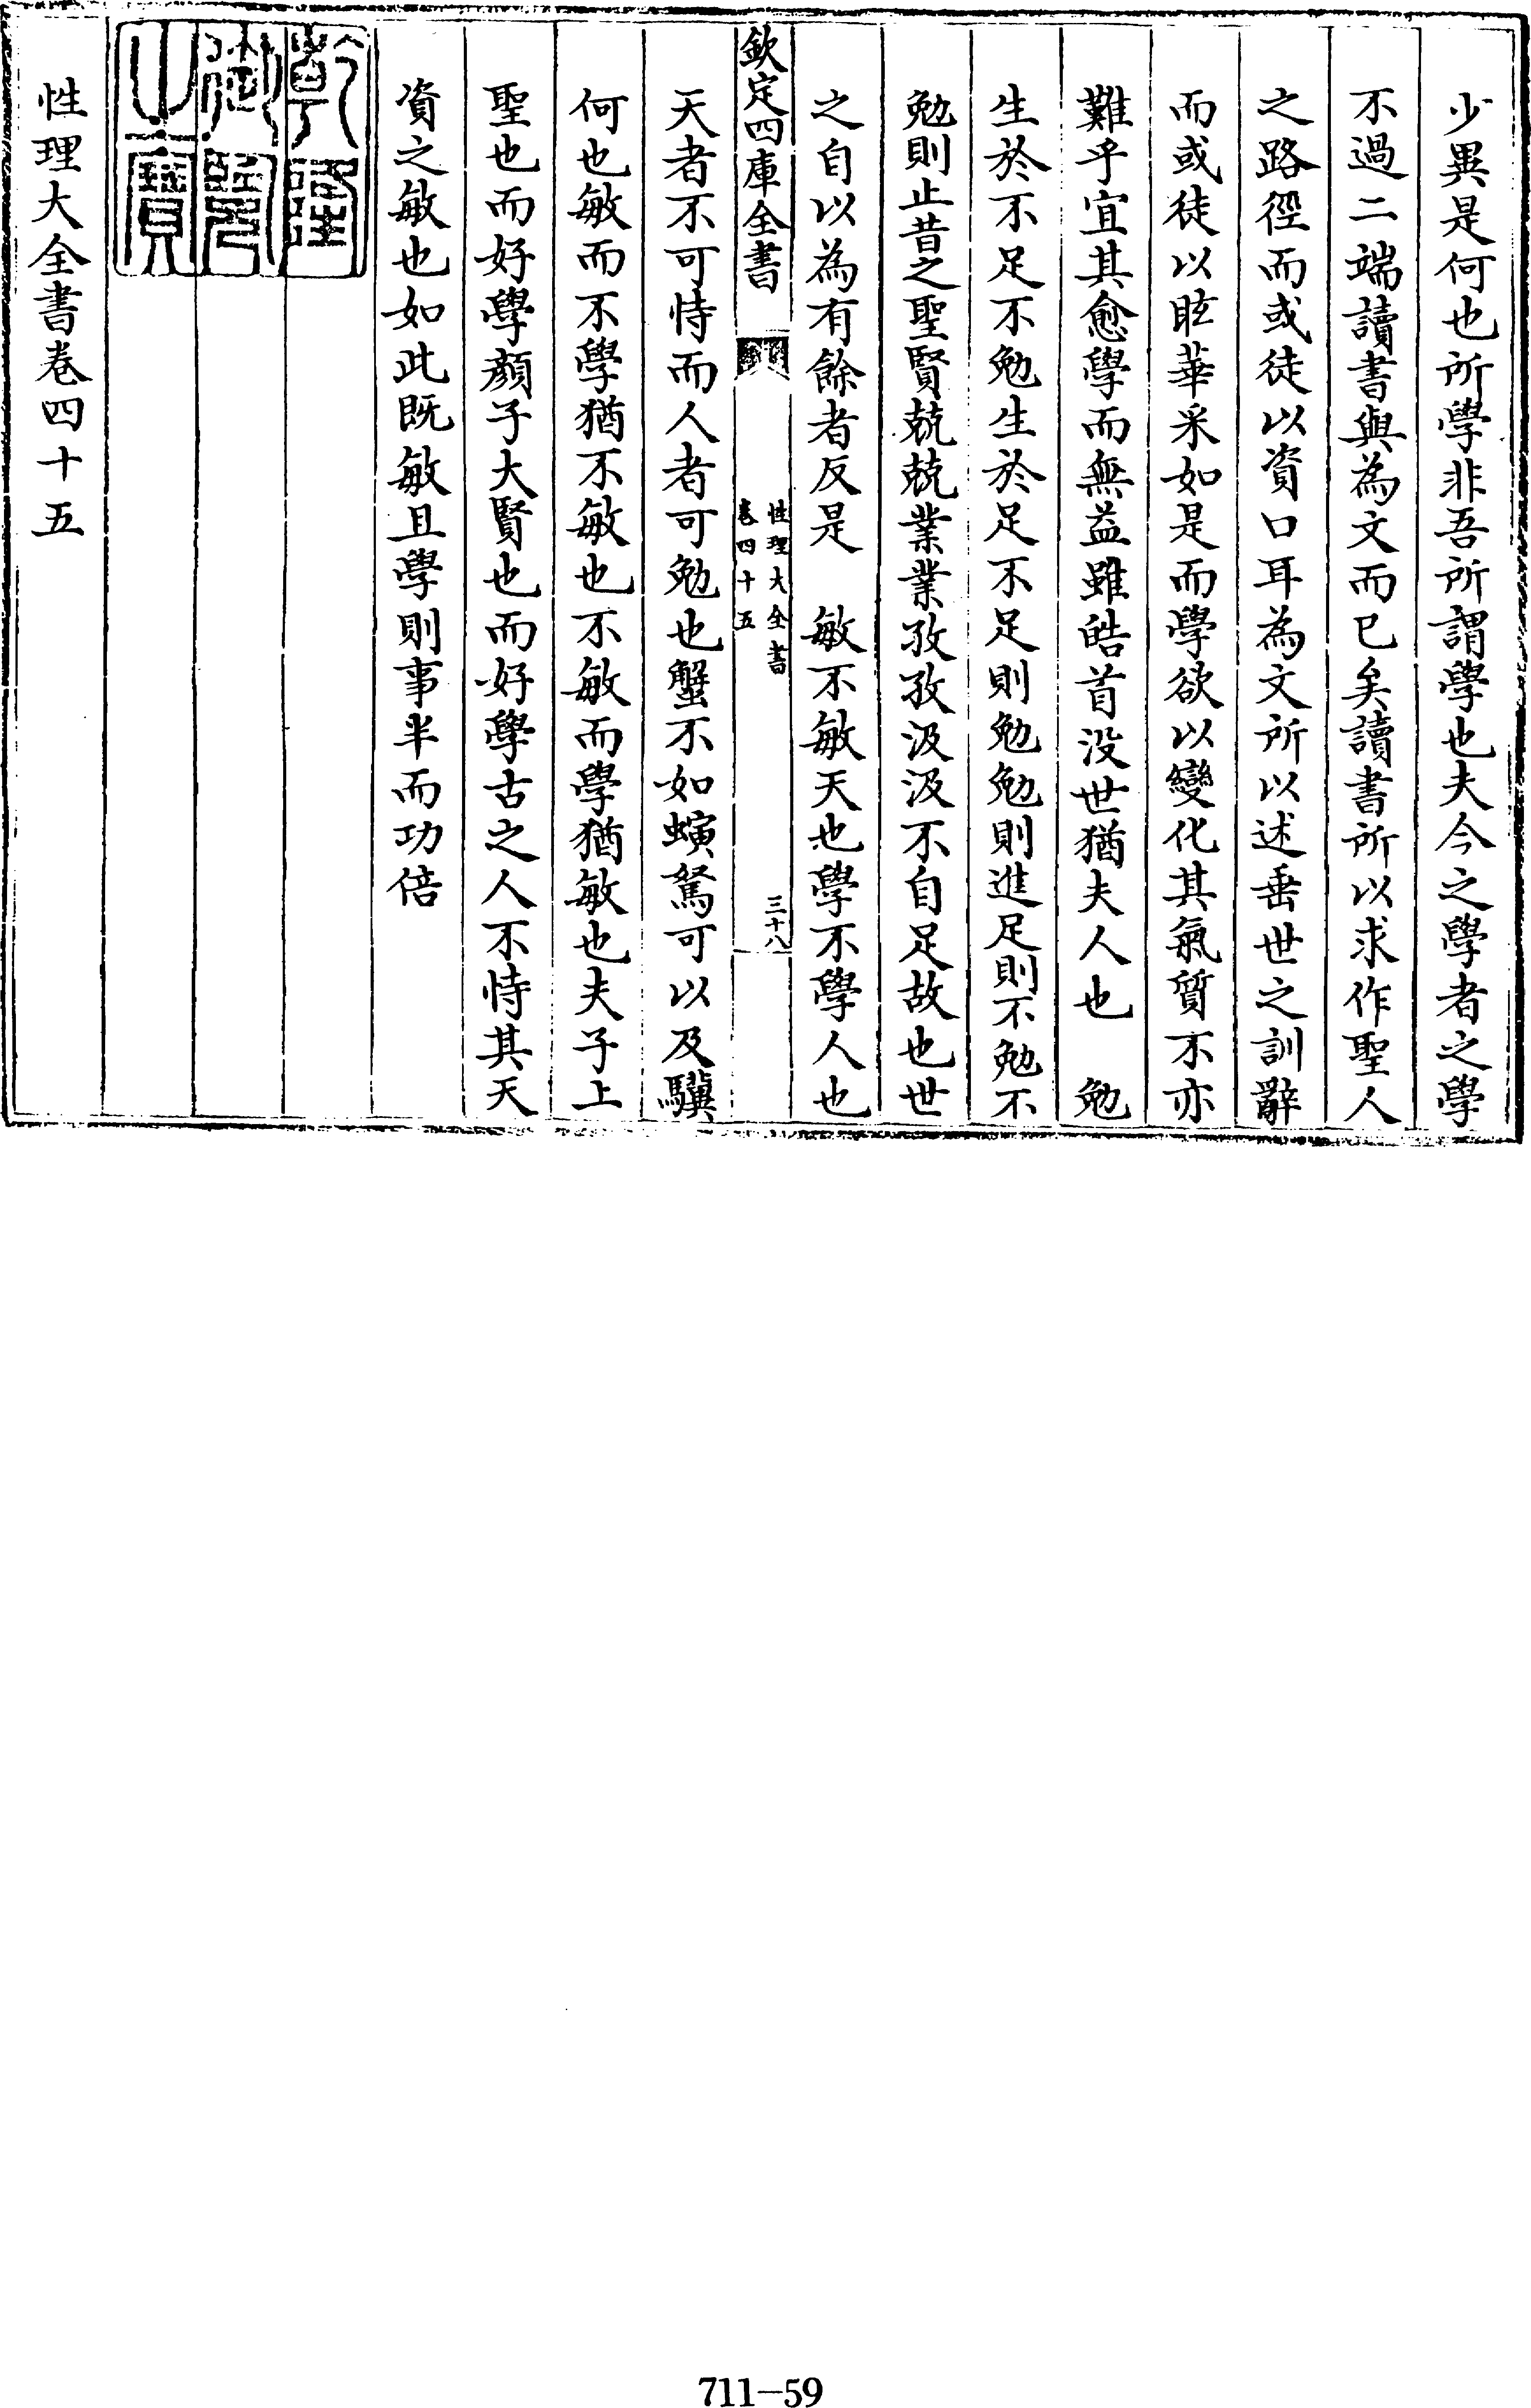 少異是何也所學非吾所謂學也夫今之學者之學
不過二端讀書與為文而已矣讀書所以求作聖人
之路徑而或徒以資口耳為文所以述垂世之訓辭
而或徒以眩華采如是而學欲以變化其氣質不亦
難乎宜其愈學而無益雖皓首没世猶夫人也　勉
生於不足不勉生於足不足則勉勉則進足則不勉不
勉則止昔之聖賢兢兢業業孜孜汲汲不自足故也世
之自以為有餘者反是　敏不敏天也學不學人也
欽定四庫全書
性理大全書
卷四十五
三十八
天者不可恃而人者可勉也蟹不如螾駑可以及驥
何也敏而不學猶不敏也不敏而學猶敏也夫子上
聖也而好學顏子大賢也而好學古之人不恃其天
資之敏也如此既敏且學則事半而功倍
乾隆
御覽
之寶
性理大全書卷四十五
711-59